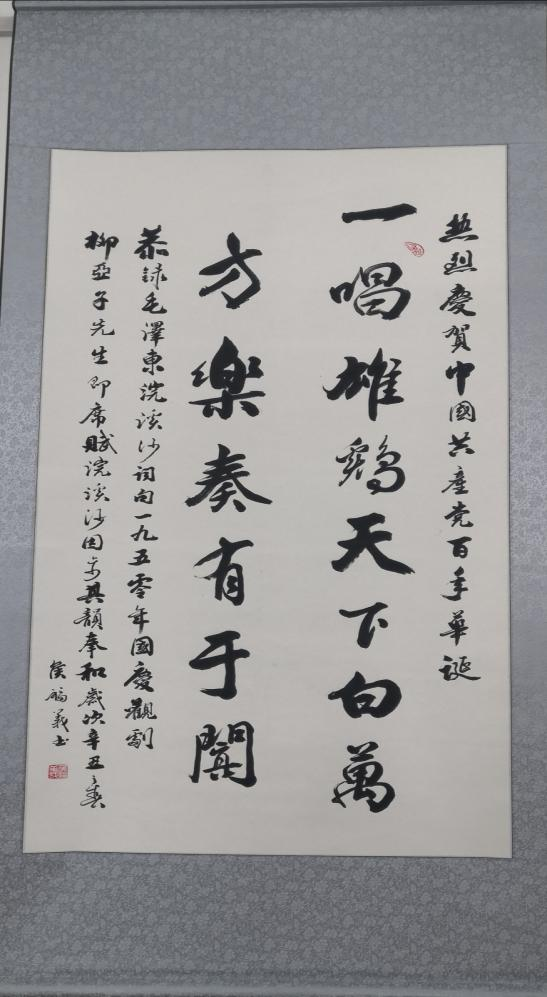 热烈慶賀中國共產党百年華誕
一唱雄鷄天下白萬
方樂奏有于闐
恭録毛澤東浣溪沙詞句一九五零年國慶觀劇
柳亞子先生即席賦浣溪沙因步其韻奉和歲次辛丑之春
侯義书